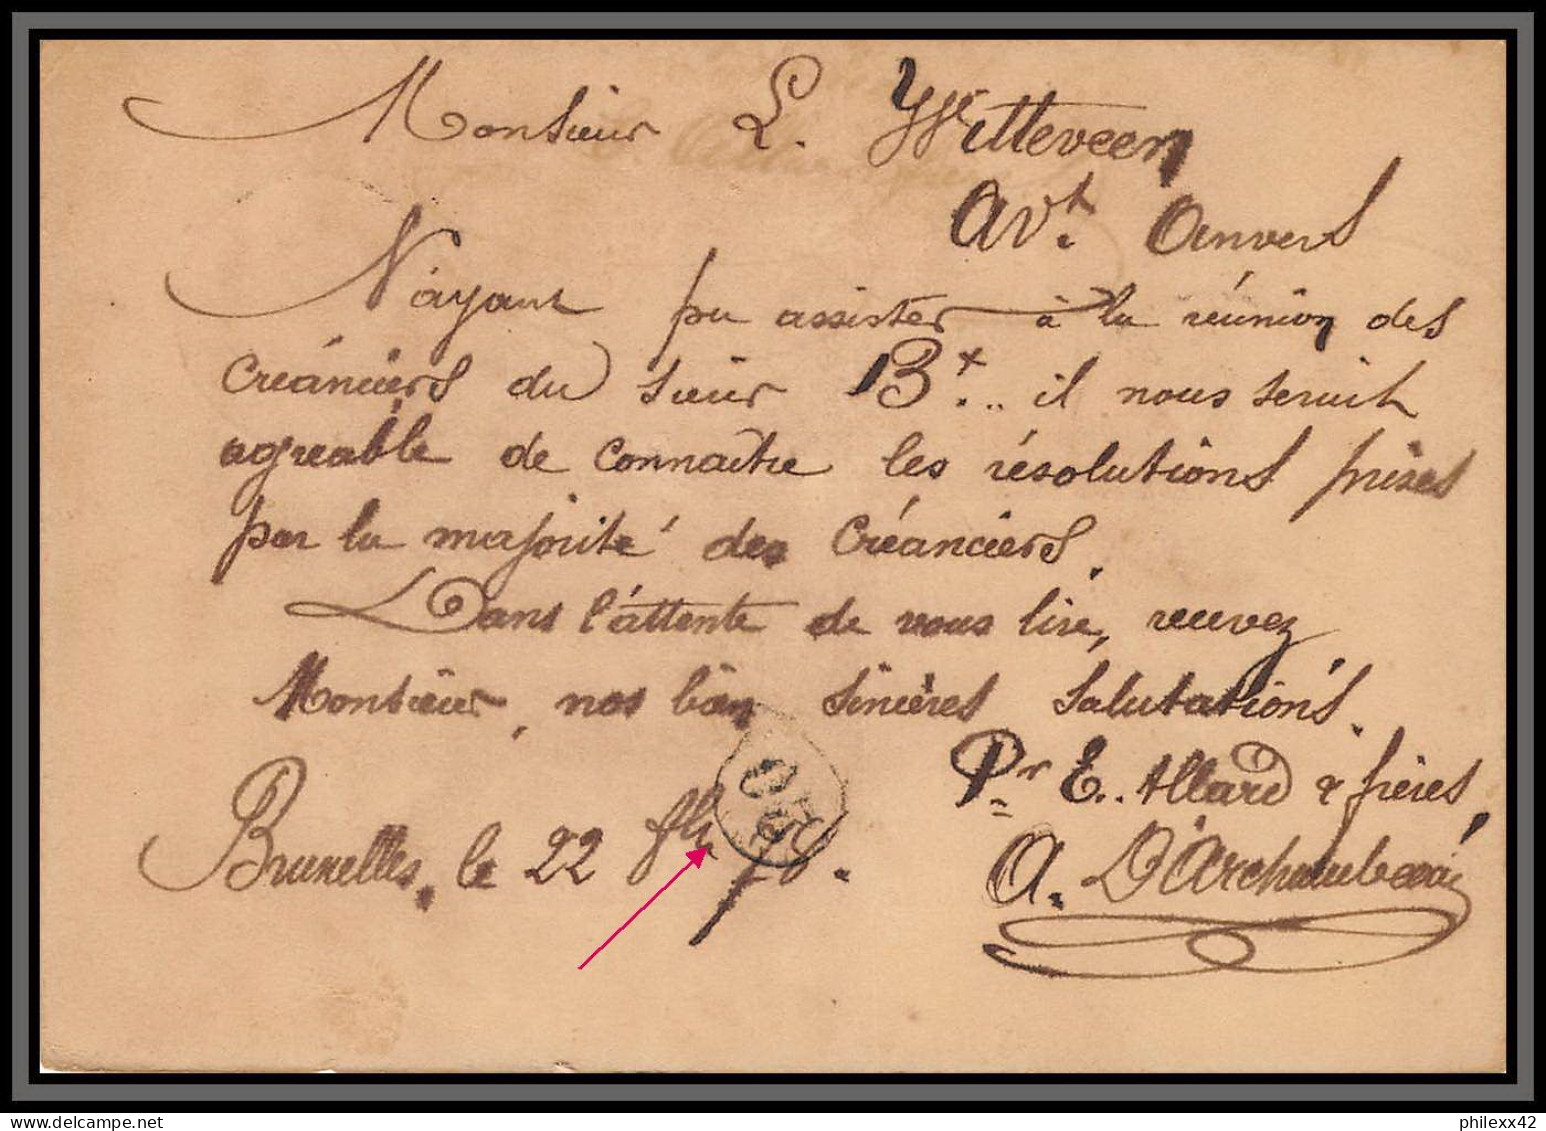 Monsieur L. Witteveen
Avt. Anvers
N'ayant pu assister à la réunion des
Créanciers du sieur Bx... il nous serait
agreable de connaître les résolutions prises
par la majorité des Créanciers.
Dans l'attente de vous lire, recevez
Monsieur, nos bien sincères salutations.
Pr E. Allard & frères,
Bruxelles, le 22 78.
A. D'Archambeau
philexx42